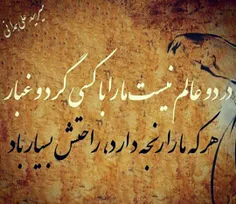 میر سید علی همدانی
در دو عالم نیست ما را با کسی گرد و غبار
هر که ما را رنجه دارد، راحتش بسیار باد